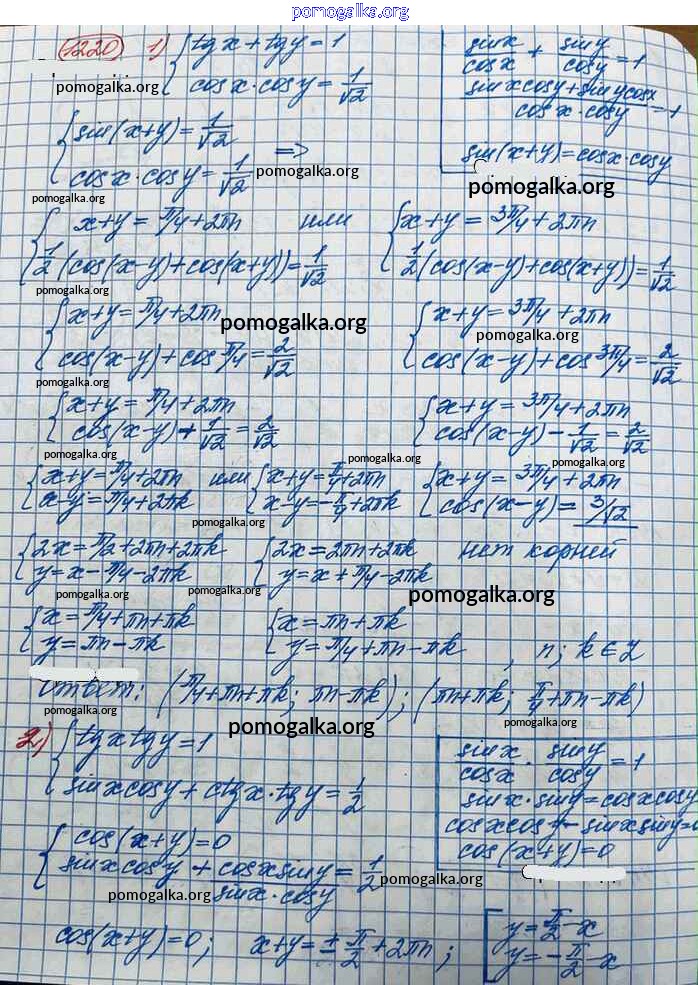 pomogalka.org
1220 1) { tg x + tg y = 1
cos x · cos y = 1/√2
pomogalka.org
sin x/cos x + sin y/cos y = 1
(sin x cos y + sin y cos x)/(cos x · cos y) = 1
sin(x+y) = cos x · cos y
pomogalka.org
{ sin(x+y) = 1/√2
cos x · cos y = 1/√2 =>
pomogalka.org
pomogalka.org
{ x+y = π/4 + 2πn или { x+y = 3π/4 + 2πn
1/2 (cos(x-y) + cos(x+y)) = 1/√2 1/2 (cos(x-y) + cos(x+y)) = 1/√2
pomogalka.org
{ x+y = π/4 + 2πn { x+y = 3π/4 + 2πn
pomogalka.org pomogalka.org
cos(x-y) + cos π/4 = 2/√2 cos(x-y) + cos 3π/4 = 2/√2
pomogalka.org
{ x+y = π/4 + 2πn { x+y = 3π/4 + 2πn
cos(x-y) + 1/√2 = 2/√2 cos(x-y) - 1/√2 = 2/√2
pomogalka.org pomogalka.org pomogalka.org
{ x+y = π/4 + 2πn или { x+y = π/4 + 2πn { x+y = 3π/4 + 2πn
x-y = π/4 + 2πk x-y = -π/4 + 2πk cos(x-y) = 3/√2
pomogalka.org
{ 2x = π/2 + 2πn + 2πk { 2x = 2πn + 2πk нет корней
y = x - π/4 - 2πk y = x + π/4 - 2πk
pomogalka.org pomogalka.org pomogalka.org
{ x = π/4 + πn + πk { x = πn + πk
y = πn - πk y = π/4 + πn - πk , n; k ∈ Z
Ответ: (π/4 + πn + πk; πn - πk); (πn + πk; π/4 + πn - πk)
pomogalka.org pomogalka.org pomogalka.org
2) { tg x tg y = 1
sin x cos y + ctg x · tg y = 1/2
sin x/cos x · sin y/cos y = 1
sin x · sin y = cos x cos y
cos x cos y - sin x sin y = 0
cos(x+y) = 0
{ cos(x+y) = 0
sin x cos y + cos x sin y/sin x · cos y = 1/2
pomogalka.org pomogalka.org
cos(x+y) = 0; x+y = ± π/2 + 2πn; [ y = π/2 - x
y = -π/2 - x